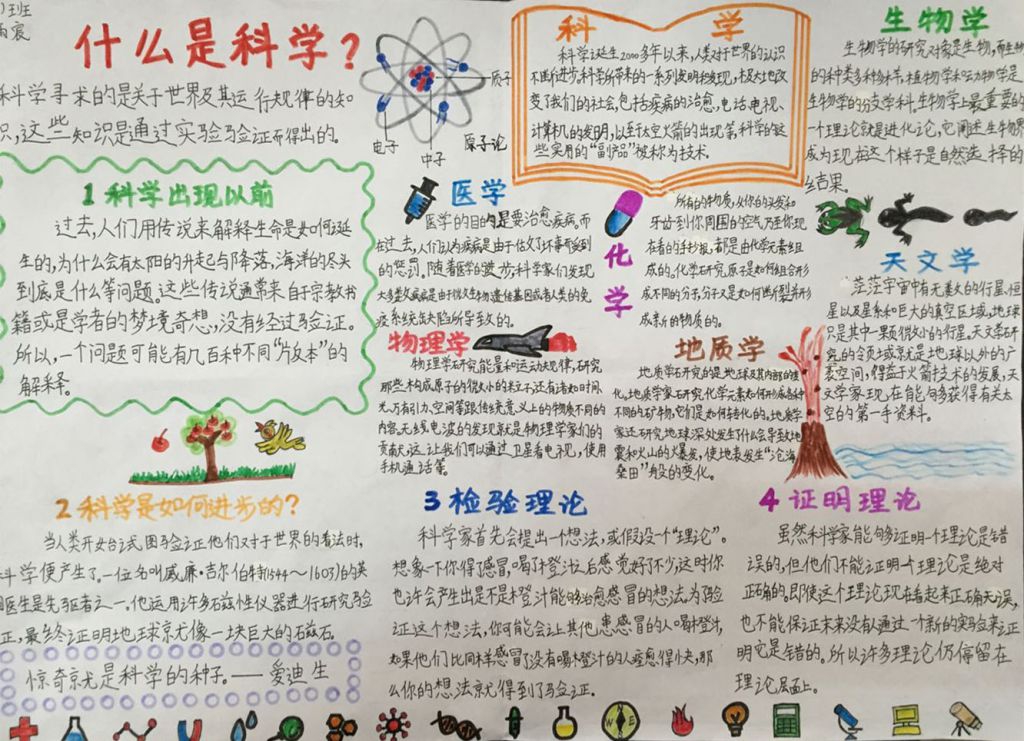 )班
雨宸
什么是科学？
科学寻求的是关于世界及其运行规律的知
识，这些知识是通过实验验证而得出的。
质子
电子
中子
原子论
科 学
科学诞生2000多年以来，人类对于世界的认识
不断进步，科学所带来的一系列发明和发现，极大地改
变了我们的社会，包括疾病的治愈，电话电视、
计算机的发明，以至于太空火箭的出现等，科学的这
些实用的“副产品”被称为技术。
生物学
生物学的研究对象是生物，而生物
的种类多种多样，植物学和动物学是
生物学的分支学科。生物学上最重要的
一个理论就是进化论，它阐述生物界
成为现在这个样子是自然选择的
结果。
1 科学出现以前
过去，人们用传说来解释生命是如何诞
生的，为什么会有太阳的升起与降落，海洋的尽头
到底是什么等问题。这些传说通常来自于宗教书
籍或是学者的梦境奇想，没有经过验证。
所以，一个问题可能有几百种不同“版本”的
解释。
医学
医学的目的是要治愈疾病。而
在过去，人们认为疾病是由于他做了坏事而受到
的惩罚，随着医学的进步，科学家们发现
大多数疾病是由于微生物遗传基因或者人类的免
疫系统缺陷所导致的。
化
学
所有的物质，从你的头发和
牙齿到你周围的空气乃至你现
在看的手抄报，都是由化学元素组
成的。化学研究，原子是如何组合形
成不同的分子，分子又是如何断裂并形
成新的物质的。
天文学
茫茫宇宙中有无数的行星、恒
星以及星系和巨大的真空区域，地球
只是其中一颗微小的行星。天文学研
究的领域或就是地球以外的广
袤空间，得益于火箭技术的发展，天
文学家现在能够获得有关太
空的第一手资料。
物理学
物理学研究能量和运动规律，研究
那些构成原子的微小的粒子，还有诸如时间、
光、万有引力、空间等跟传统意义上的物质不同的
内容。无线电波的发现就是物理学家们的
贡献，这让我们可以通过卫星看电视，使用
手机通话等。
地质学
地质学石研究的是地球及其内部的变
化。地质学家研究化学元素如何形成各种
不同的矿物，它们是如何转化的。地质学
家还研究地球深处发生了什么会导致地
震和火山的火暴发，使地表发生“沧海
桑田”般的变化。
2 科学是如何进步的？
当人类开始试图验证他们对于世界的看法时，
科学便产生了，一位名叫威廉·吉尔伯特(1544～1603)的英
国医生是先驱者之一，他运用许多磁性仪器进行研究验
证，最终证明地球就像一块巨大的石兹石。
惊奇就是科学的种子。——爱迪生
3 检验理论
科学家首先会提出一个想法，或假设个“理论”。
想象一下你得感冒，喝了橙汁后感觉好了不少，这时你
也许会产生出是不是橙汁能够治愈感冒的想法。为验
证这个想法，你可能会让其他患感冒的人喝橙汁，
如果他们比同样感冒了没有喝橙汁的人痊愈得快，那
么你的想法就得到了验证。
4 证明理论
虽然科学家能够证明一个理论是错
误的，但他们不能证明一个理论是绝对
正确的。即使这个理论现在看起来正确无误，
也不能保证未来没有人通过一个新的实验来证
明它是错的。所以许多理论仍停留在
理论层面上。
N
W
E
S